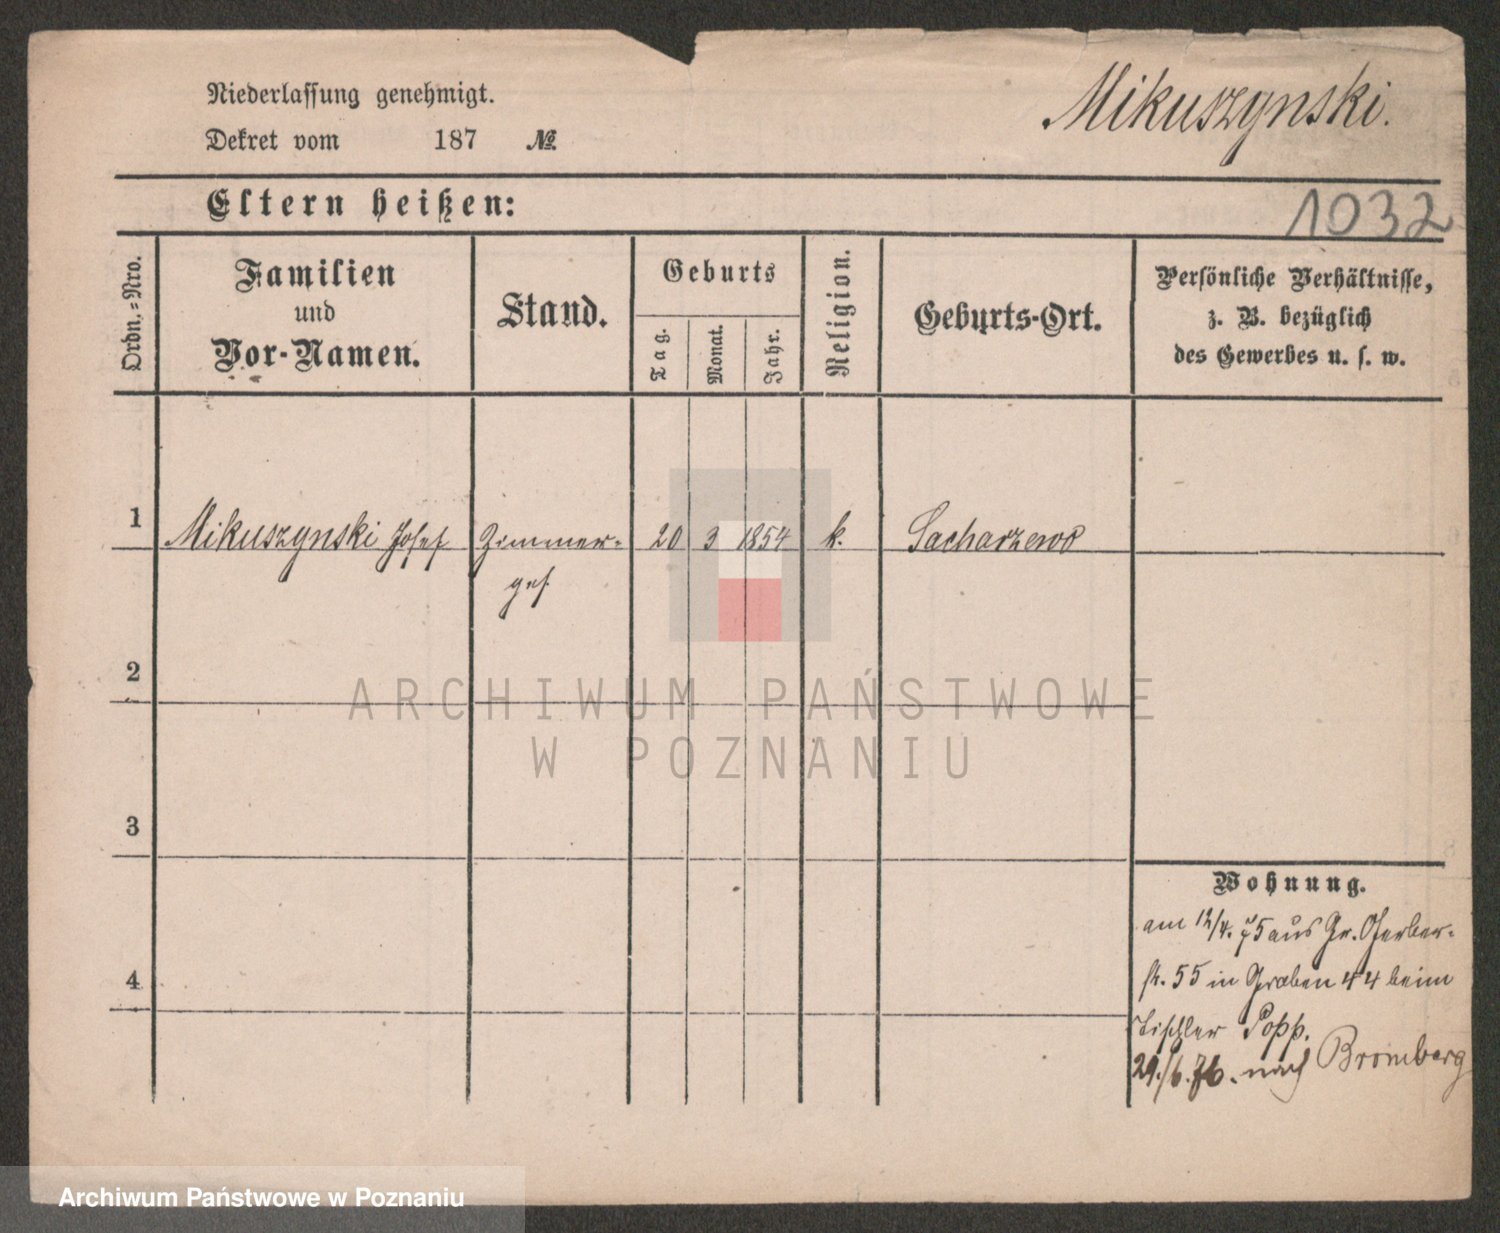 Niederlassung genehmigt.
Mikuszynski.
Dekret vom 187 №
Eltern heißen:
1032
Ordn.-Nro.
Familien
und
Vor-Namen.
Stand.
Geburts
Tag.
Monat.
Jahr.
Religion.
Geburts-Ort.
Persönliche Verhältnisse,
z. B. bezüglich
des Gewerbes u. s. w.
1 Mikuszynski Josef Zimmer- 20 3 1854 k. Sacharzewo
ges.
2
ARCHIWUM PAŃSTWOWE
W POZNANIU
3
Wohnung.
am 12/4. 75 aus Gr. Gerber-
4
st. 55 in Graben 44 beim
Tischler Popp.
29./6. 76. nach Bromberg
Archiwum Państwowe w Poznaniu